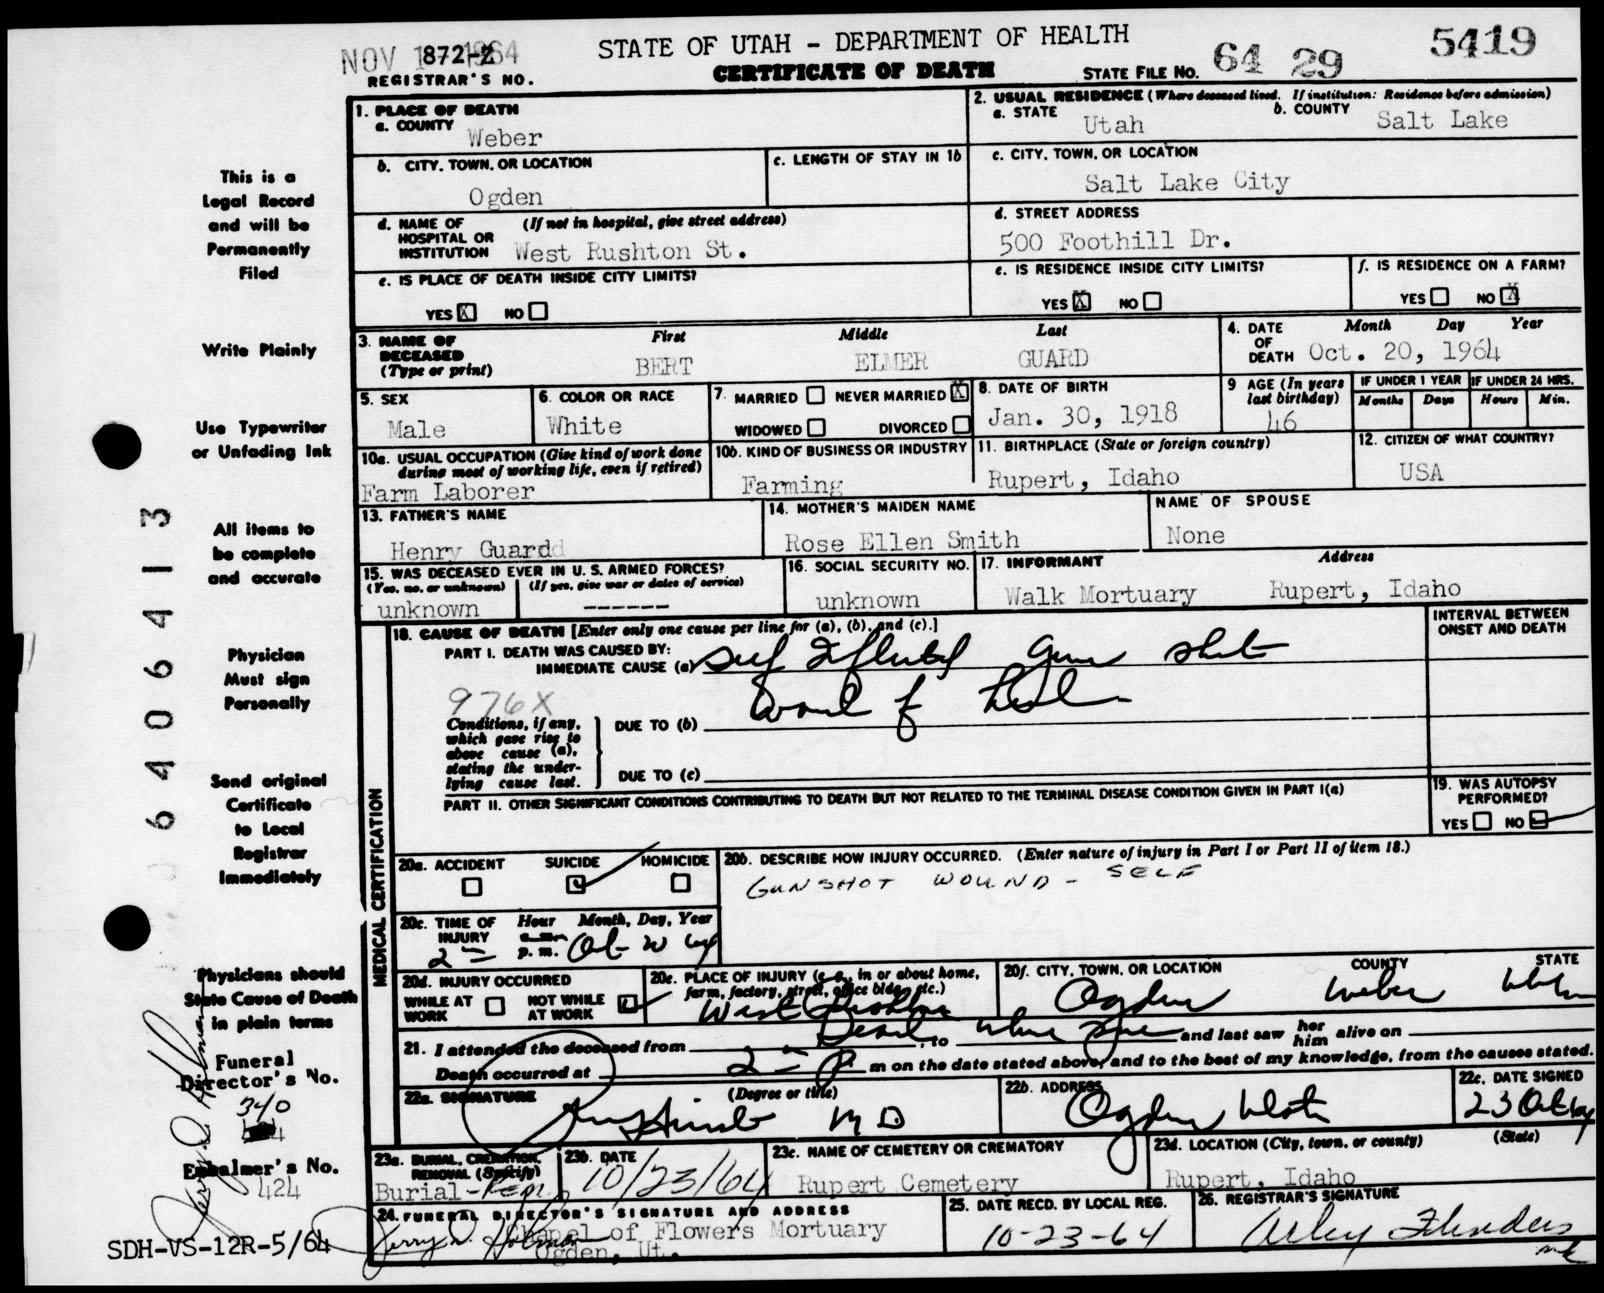 NOV 1 1964 872-2
REGISTRAR'S NO.
STATE OF UTAH - DEPARTMENT OF HEALTH
CERTIFICATE OF DEATH
STATE FILE NO. 64 29 5419
This is a
Legal Record
and will be
Permanently
Filed
Write Plainly
Use Typewriter
or Unfading Ink
All items to
be complete
and accurate
Physician
Must sign
Personally
Send original
Certificate
to Local
Registrar
Immediately
Physicians should
State Cause of Death
in plain terms
Funeral
Director's No.
340
Embalmer's No.
424
Jerry D. Holman
SDH-VS-12R-5/64
6406413
1. PLACE OF DEATH
a. COUNTY Weber
2. USUAL RESIDENCE (Where deceased lived. If institution: Residence before admission)
a. STATE Utah b. COUNTY Salt Lake
b. CITY, TOWN, OR LOCATION Ogden
c. LENGTH OF STAY IN 1b
c. CITY, TOWN, OR LOCATION
Salt Lake City
d. NAME OF HOSPITAL OR INSTITUTION (If not in hospital, give street address)
West Rushton St.
d. STREET ADDRESS
500 Foothill Dr.
e. IS PLACE OF DEATH INSIDE CITY LIMITS?
YES X NO
e. IS RESIDENCE INSIDE CITY LIMITS?
YES X NO
f. IS RESIDENCE ON A FARM?
YES NO X
3. NAME OF DECEASED (Type or print)
First Middle Last
BERT ELMER GUARD
4. DATE OF DEATH Month Day Year
Oct. 20, 1964
5. SEX
Male
6. COLOR OR RACE
White
7. MARRIED NEVER MARRIED X
WIDOWED DIVORCED
8. DATE OF BIRTH
Jan. 30, 1918
9 AGE (In years last birthday)
46
IF UNDER 1 YEAR IF UNDER 24 HRS.
Months Days Hours Min.
10a. USUAL OCCUPATION (Give kind of work done during most of working life, even if retired)
Farm Laborer
10b. KIND OF BUSINESS OR INDUSTRY
Farming
11. BIRTHPLACE (State or foreign country)
Rupert, Idaho
12. CITIZEN OF WHAT COUNTRY?
USA
13. FATHER'S NAME
Henry Guardd
14. MOTHER'S MAIDEN NAME
Rose Ellen Smith
NAME OF SPOUSE
None
15. WAS DECEASED EVER IN U.S. ARMED FORCES?
(Yes, no, or unknown) (If yes, give war or dates of service)
unknown ------
16. SOCIAL SECURITY NO.
unknown
17. INFORMANT Address
Walk Mortuary Rupert, Idaho
MEDICAL CERTIFICATION
18. CAUSE OF DEATH [Enter only one cause per line for (a), (b), and (c).]
INTERVAL BETWEEN ONSET AND DEATH
PART I. DEATH WAS CAUSED BY:
IMMEDIATE CAUSE (a) Self Inflicted Gun Shot
Wound of
976X
Conditions, if any, which gave rise to above cause (a), stating the underlying cause last.
DUE TO (b)
DUE TO (c)
PART II. OTHER SIGNIFICANT CONDITIONS CONTRIBUTING TO DEATH BUT NOT RELATED TO THE TERMINAL DISEASE CONDITION GIVEN IN PART I(a)
19. WAS AUTOPSY PERFORMED?
YES NO
20a. ACCIDENT SUICIDE HOMICIDE
20b. DESCRIBE HOW INJURY OCCURRED. (Enter nature of injury in Part I or Part II of item 18.)
GUNSHOT WOUND - SELF
20c. TIME OF INJURY Hour Month, Day, Year
2 a.m. p.m. Oct 20 64
20d. INJURY OCCURRED
WHILE AT WORK NOT WHILE AT WORK
20e. PLACE OF INJURY (e.g., in or about home, farm, factory, street, office bldg., etc.)
West Rushton
20f. CITY, TOWN, OR LOCATION COUNTY STATE
Ogden Weber Utah
21. I attended the deceased from Dead, to when seen and last saw her him alive on
Death occurred at 2 P m on the date stated above, and to the best of my knowledge, from the causes stated.
22a. SIGNATURE (Degree or title)
M D
22b. ADDRESS
Ogden Utah
22c. DATE SIGNED
23 Oct 64
23a. BURIAL, CREMATION, REMOVAL (Specify)
Burial-Rem.
23b. DATE
10/23/64
23c. NAME OF CEMETERY OR CREMATORY
Rupert Cemetery
23d. LOCATION (City, town, or county) (State)
Rupert, Idaho
24. FUNERAL DIRECTOR'S SIGNATURE AND ADDRESS
Jerry D. Holman Chapel of Flowers Mortuary
Ogden, Ut.
25. DATE RECD. BY LOCAL REG.
10-23-64
26. REGISTRAR'S SIGNATURE
Arley Flinders
mk